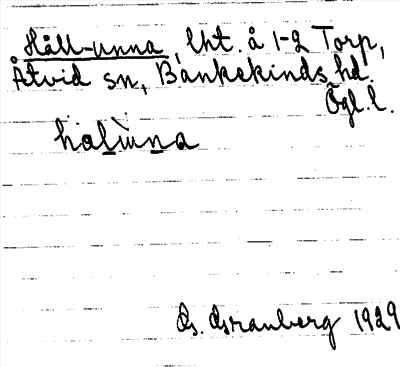 Håll-unna, lht. å 1-2 Torp,
Åtvid sn, Bankekinds hd.
Ögl. l.
Gs. Granberg 1929